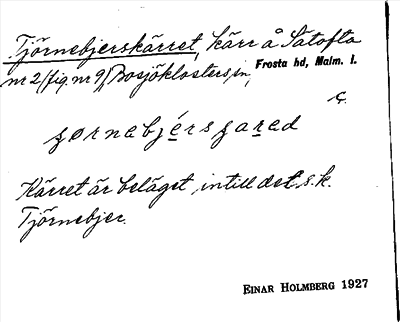 Tjörnebjerskärret, kärr å Satofta
nr 2 (fig. nr 9) Bosjöklosters sn, Frosta hd, Malm. l.
Ç.
Kärret är beläget intill det s.k.
Tjörnebjer.
EINAR HOLMBERG 1927